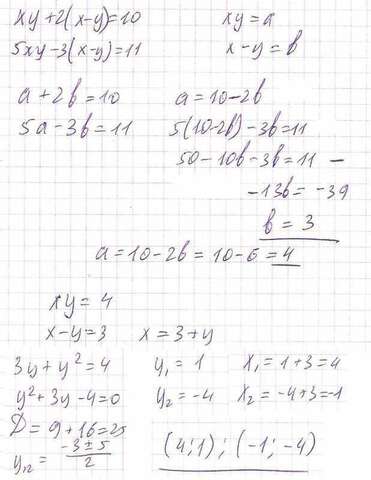 xy+2(x-y)=10 xy=a
5xy-3(x-y)=11 x-y=b
a+2b=10 a=10-2b
5a-3b=11 5(10-2b)-3b=11
50-10b-3b=11 -
-13b=-39
b=3
a=10-2b=10-6=4
xy=4
x-y=3 x=3+y
3y+y²=4 y₁=1 x₁=1+3=4
y²+3y-4=0 y₂=-4 x₂=-4+3=-1
D=9+16=25
y₁₂=(-3±5)/2 (4;1);(-1;-4)